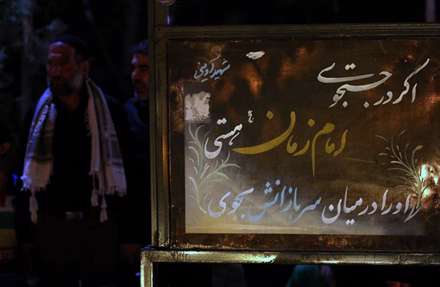 اگر در جستجوی
امام زمان هستی
او را در میان سربازانش بجوی
شهید آوینی